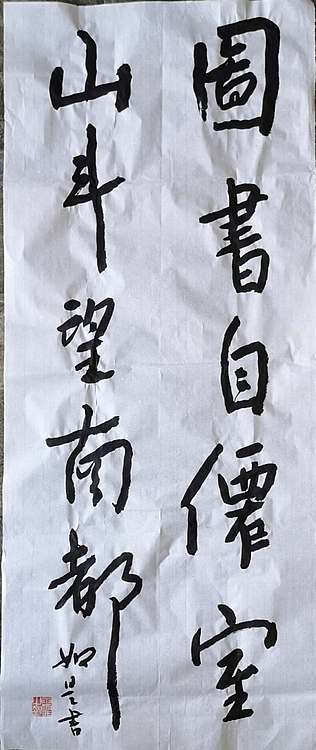 圖書自僊室
山斗望南都
如是書